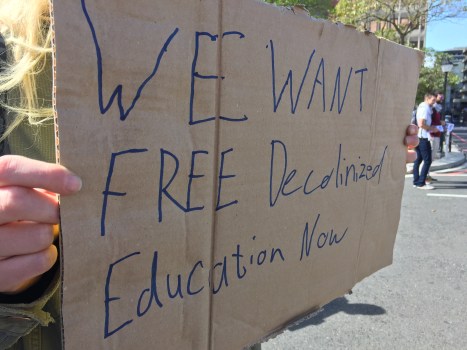 WE WANT
FREE Decolinized
Education Now